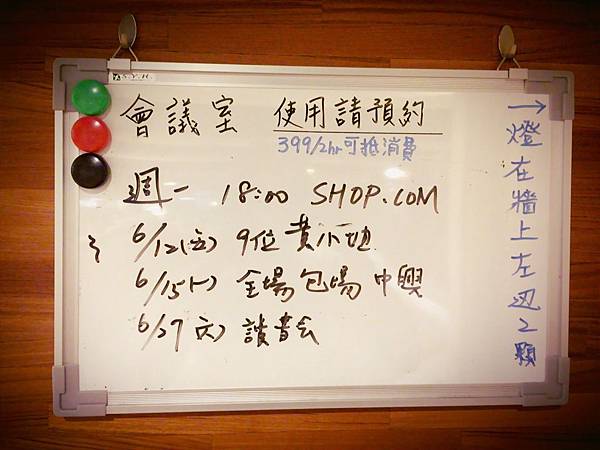 會議室 使用請預約
399/2hr可抵消費
週一 18:00 SHOP.COM
6/12(五) 9位 黃小
6/15(一) 全場包場 中興
6/27 六) 讀書会
→燈在牆上左边2顆